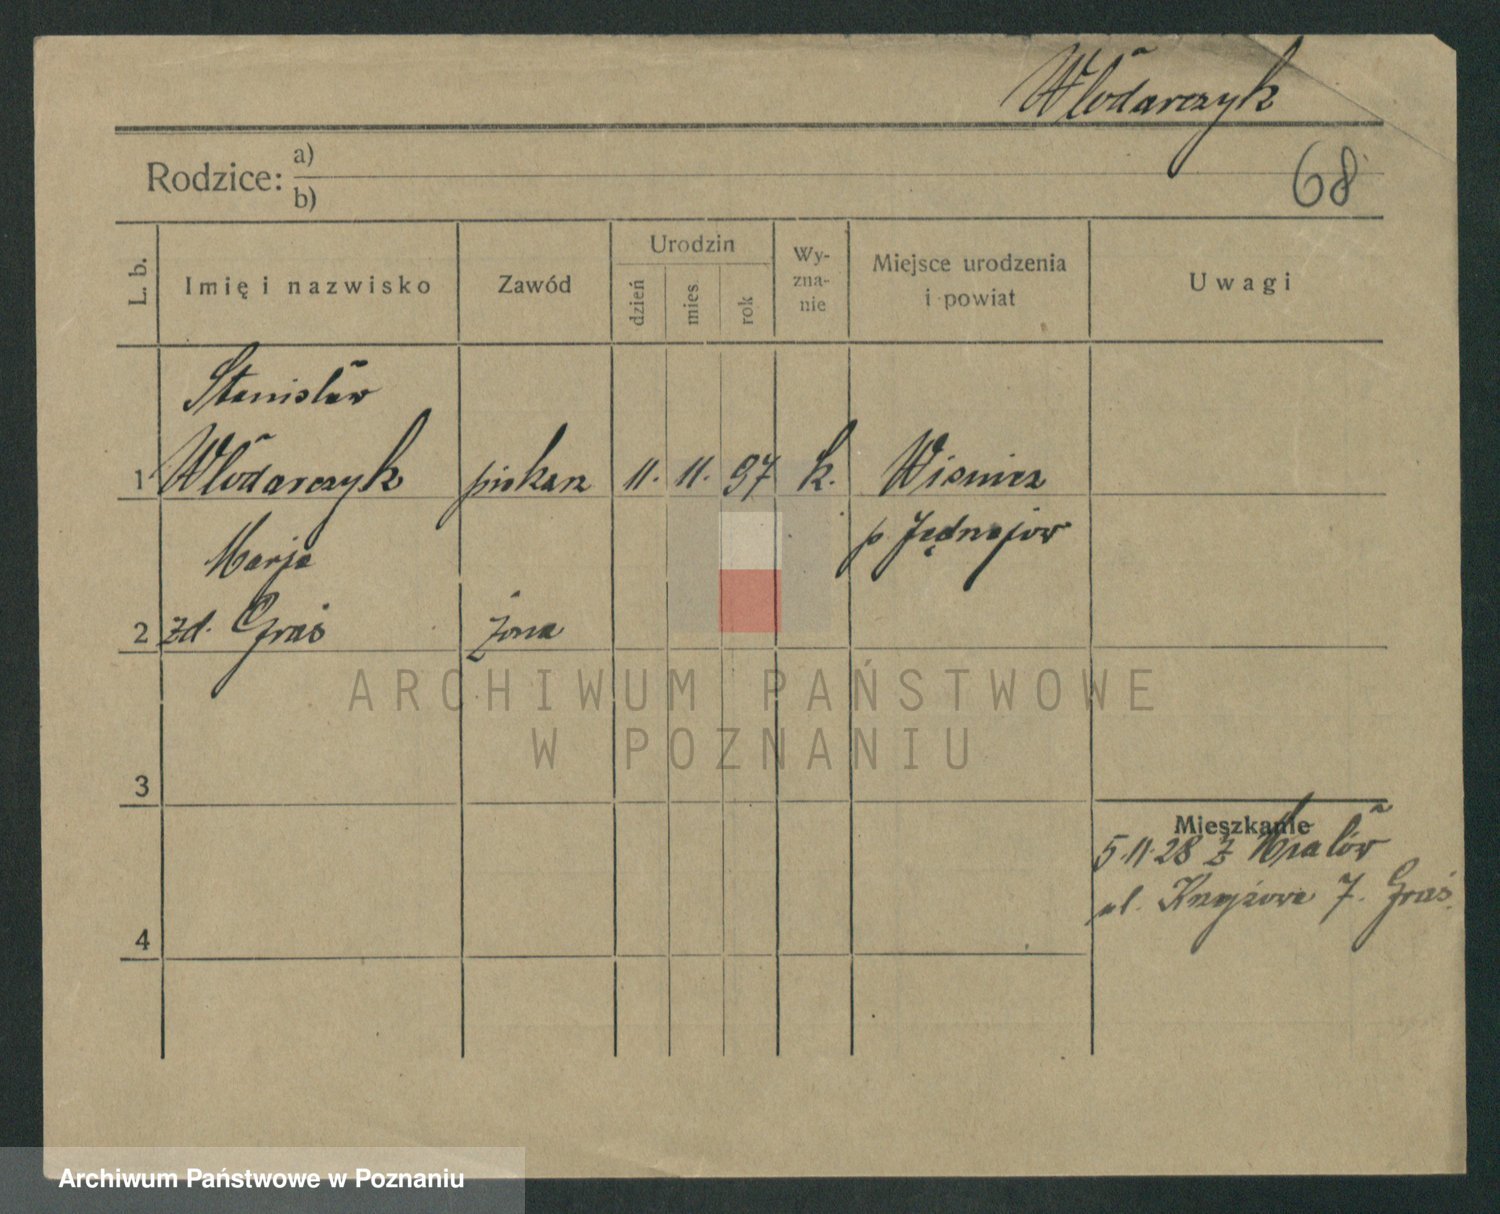 Włodarczyk
68
Rodzice: a)
b)
L. b.
Imię i nazwisko
Zawód
Urodzin
dzień
mies.
rok
Wy-
zna-
nie
Miejsce urodzenia
i powiat
Uwagi
Stanisław
1 Włodarczyk piekarz 11. 11. 97 k. Wisnicz
p Jędrzejow
Marja
2 zd. Graś żona
3
4
Mieszkanie
5.11.28 z
ul. Krzyżowa 7. Graś.
ARCHIWUM PAŃSTWOWE
W POZNANIU
Archiwum Państwowe w Poznaniu